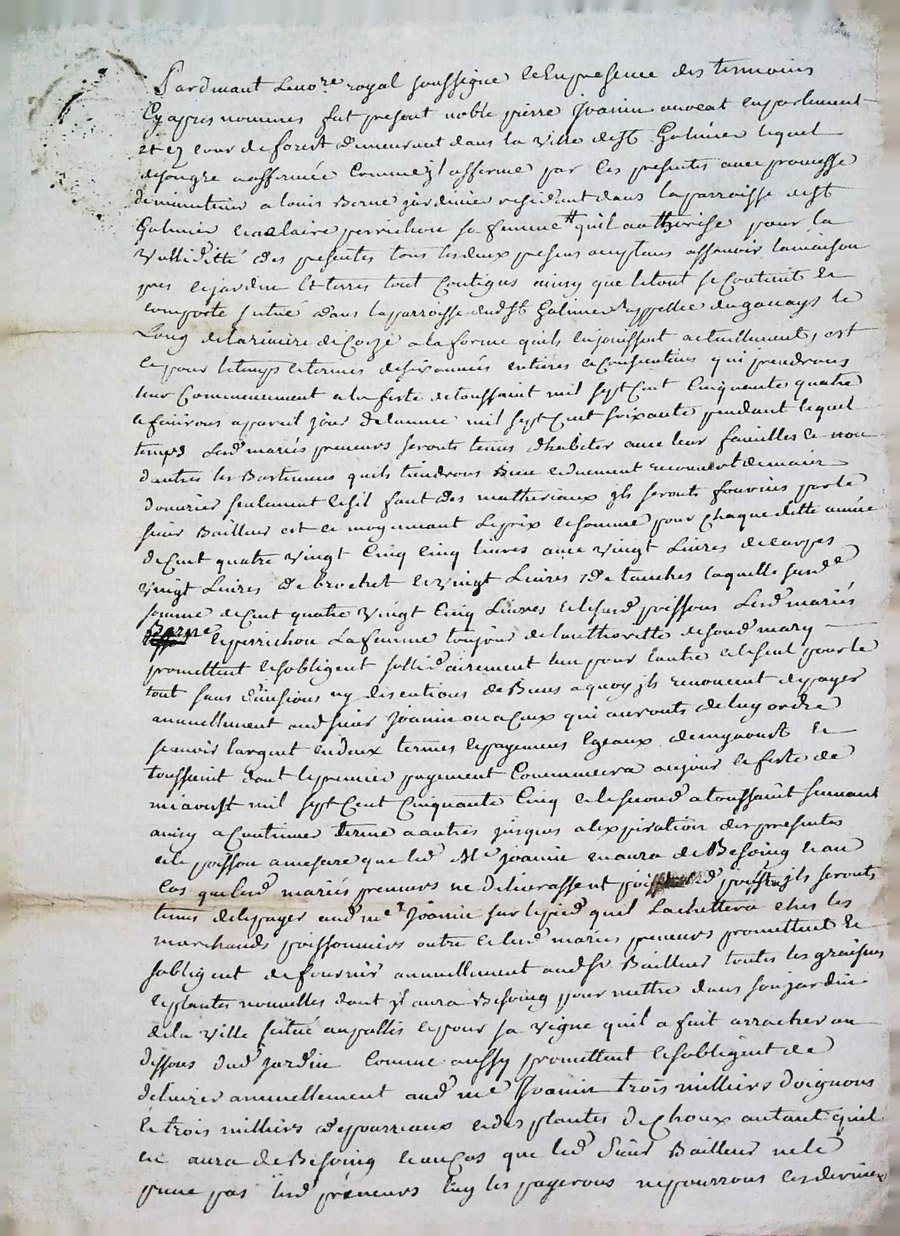 Pardevant Le no.re royal soussigné et En presence des temoins
Cy apres nommés fut present noble pierre Joanin avocat en parlement
et en cour de forest demeurant dans la ville de St Galmier lequel
de son gre a affermée Comme il afferme par les presentes avec promesse
de maintenir a Louis Berne jardinier residant dans la parroisse de St
Galmier et a claire perrichon sa femme qu'il authorise pour la
Validitté des presentes tous les deux presens acceptans assavoir la maison
pres le jardin et terres tout Contigus ainsy que le tout se Contient et
comporte scitué dans la parroisse dud St Galmier appellée du le
Long de la riviere de Coize a la forme quils en jouissent actuellement, est
ce pour le temps et termes de six années entieres et Consecutives qui prendrons
leur Commencement a la feste de toussaint mil sept Cent Cinquante quatre
et finirons a pareil jour de l'année mil sept Cent soixante pendant lequel
temps Lesd mariés preneurs seronts tenus d'habiter avec leur familles et non
d'autres les Bastimens quils tiendrons Bien et duement de main
d'ouvrier seulement et sil faut des matteriaux ils seronts fournis par le
sieur Bailleur est ce moyennant Le prix et somme pour chaque ditte année
de Cent quatre vingt Cinq Cinq livres avec vingt Livres de carpes
vingt Livres de brochet et vingt Livres de tanches laquelle susde
somme de Cent quatre vingt Cinq Livres et lesusd poissons Lesd mariés
Berne et perrichon La femme toujour de l'authoritté de soud mary
promettent et sobligent sollidairement l'un pour l'autre et le seul pour le
tout sans divisions ny discutions de Biens a quoy ils renoncent de payer
annuellement aud sieur Joanin ou a Ceux qui auronts de luy ordre
scavoir l'argent en deux termes et payemens Egeaux de myaoust et
toussaint dont le premier payement Commencera au jour et feste de
miaoust mil sept Cent Cinquante Cinq et le second a toussaint suivant
ainsy a Continuer terme a autres jusques a l'expiration des presentes
et le poisson a mesure que led Me Joanin en aura de Besoing et au
Cas que lesd mariés preneurs ne delivrassent ils seronts
tenus de le payer aud me Joanin sur le pied quil L'achettera chez les
marchands poissonniers outre ce lesd mariés preneurs promettent et
sobligent de fournir annuellement aud Sr Bailleur toutes les graines
et plantes nouvelles dont il aura Besoing pour mettre dans son jardin
de la ville scitué au pallis et pour sa vigne quil a fait arracher au
dessous dud jardin Comme aussy promettent et sobligent de
delivrer annuellement aud me Joanin trois milliers d'oignons
et trois milliers de pourreaux et des plantes de Choux autant quil
en aura de Besoing et au Cas que led Sieur Bailleur ne le
pas lesd preneurs luy les payerons ne pourrons ces derniers